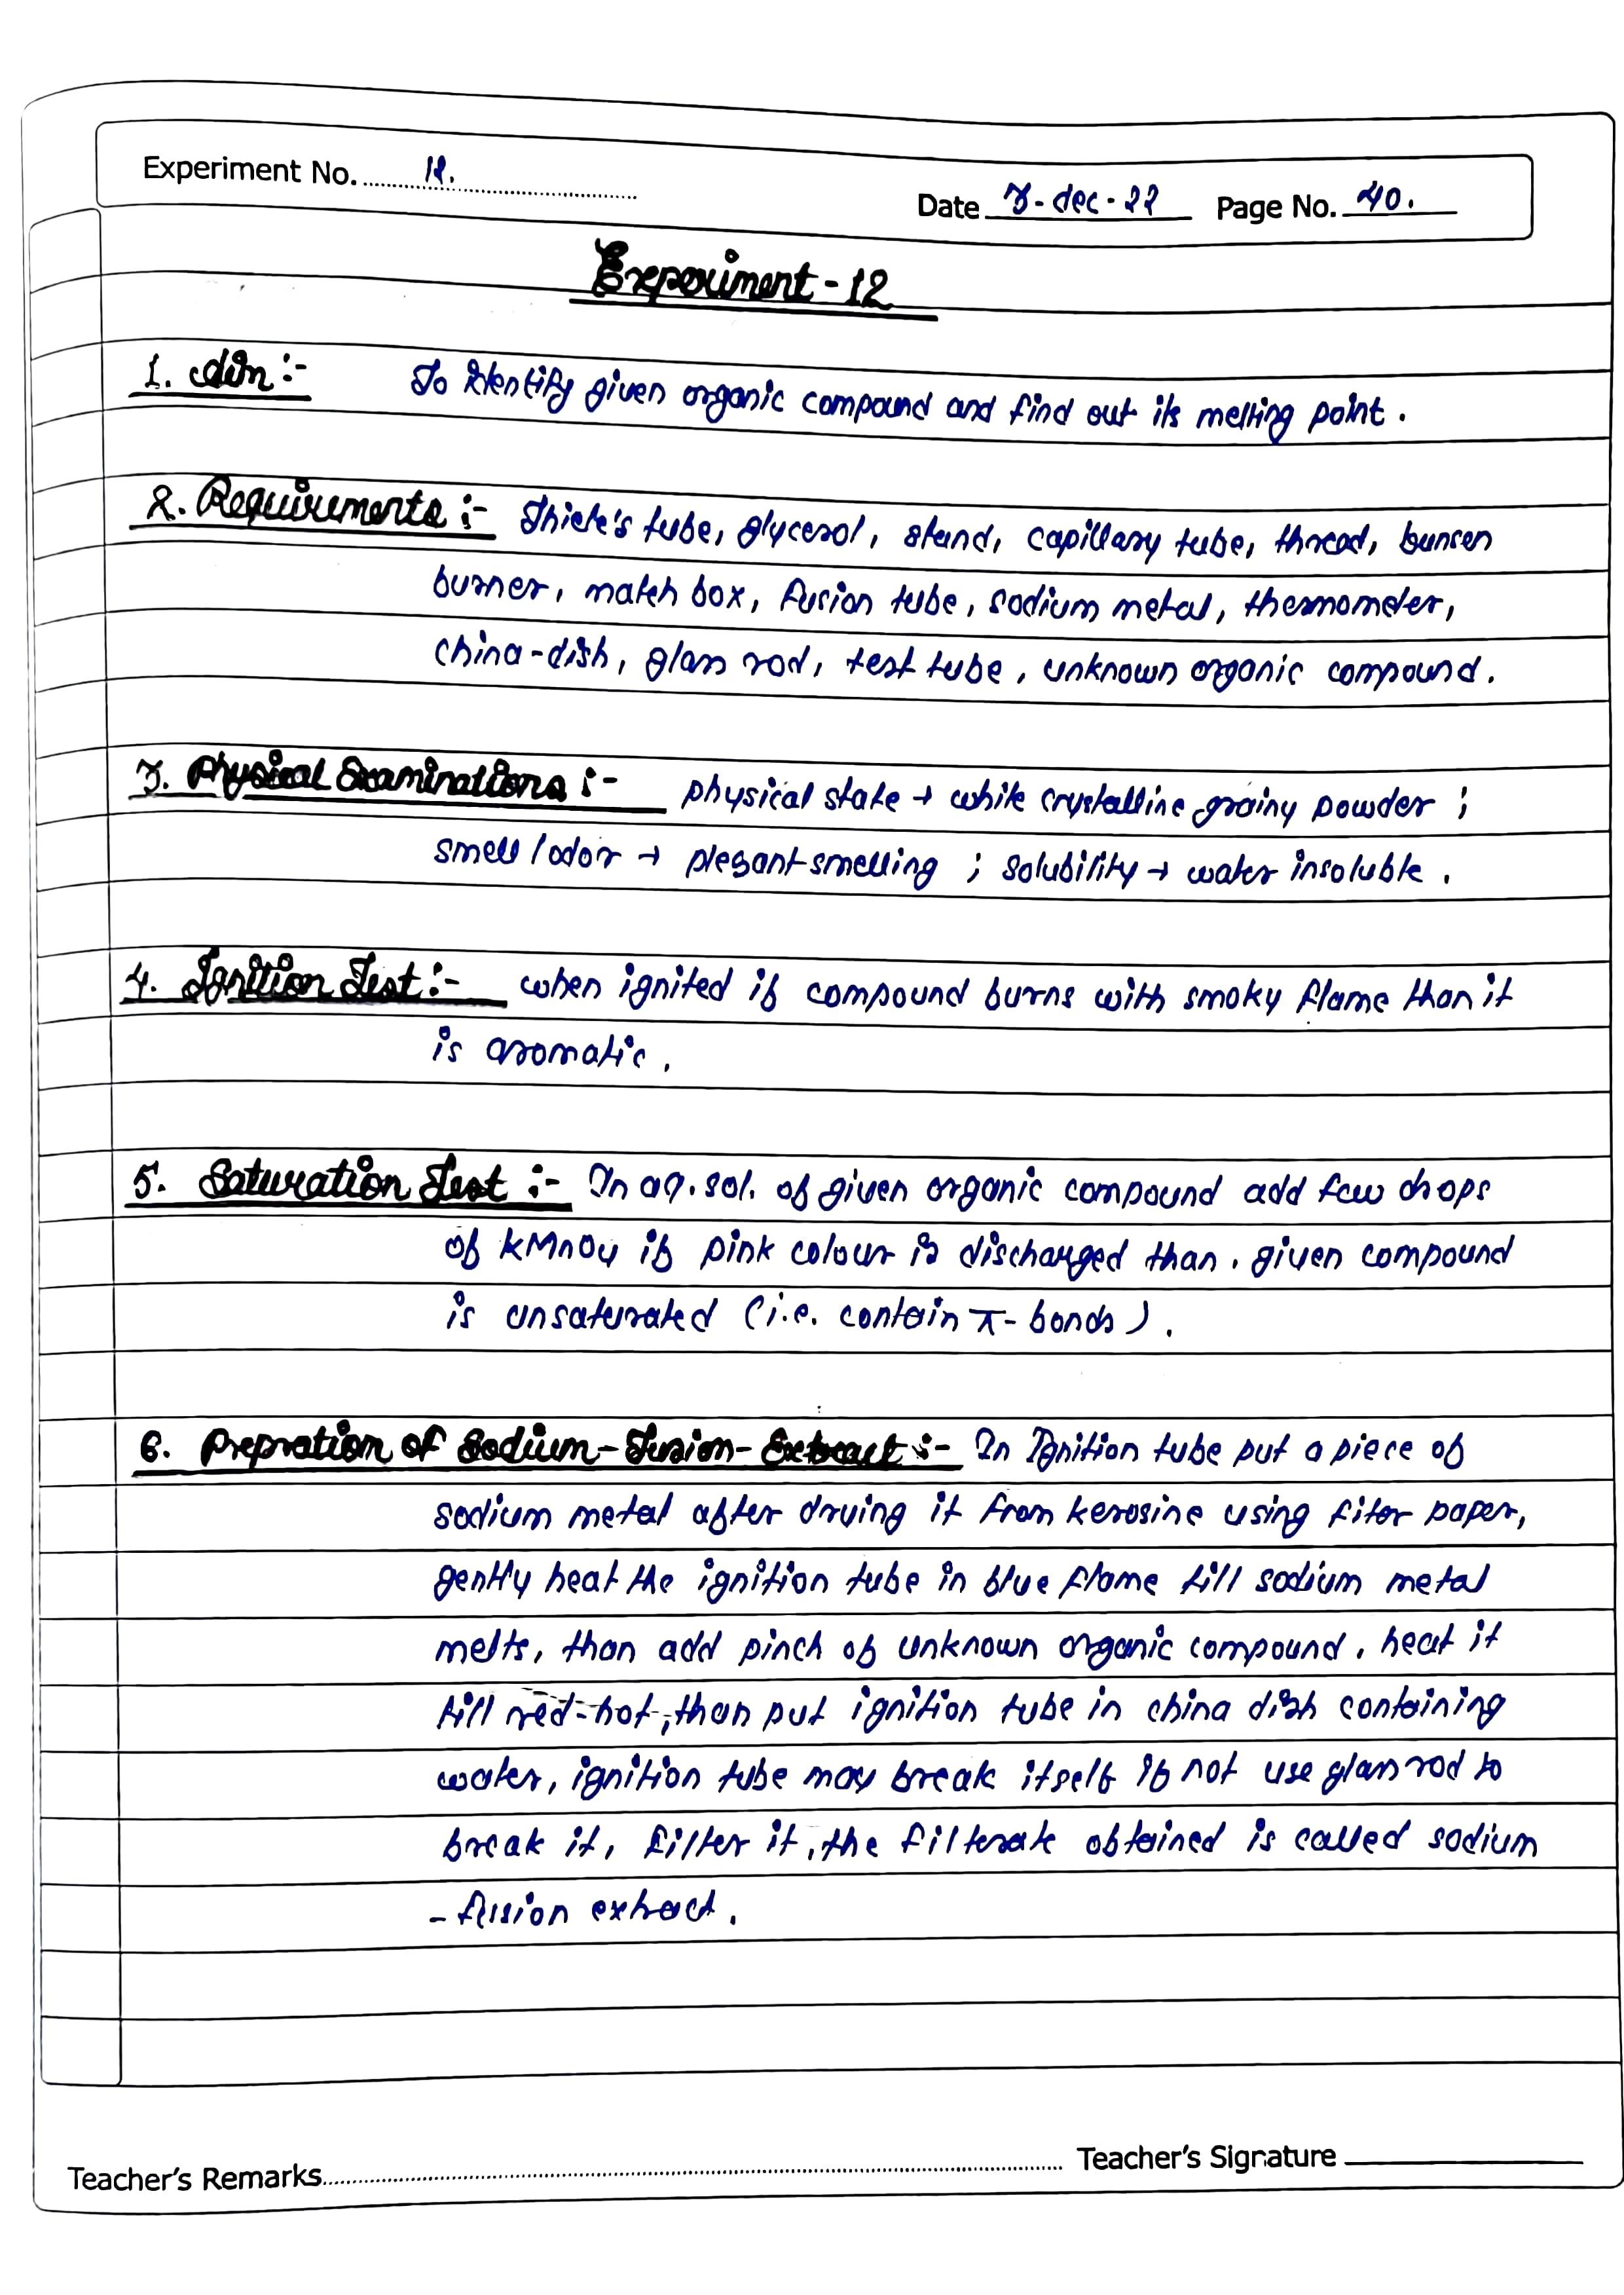 Experiment No. 12.
Date 7-dec-22 Page No. 40.
Experiment - 12
1. Aim :- To identify given organic compound and find out its melting point.
2. Requirements :- Thiele's tube, glycerol, stand, capillary tube, thread, bunsen
burner, match box, fusion tube, sodium metal, thermometer,
china-dish, glass rod, test tube, unknown organic compound.
3. Physical Examinations :- physical state → white crystalline grainy powder ;
smell/odor → plesant smelling ; solubility → water insoluble .
4. Ignition Test :- when ignited if compound burns with smoky flame than it
is aromatic .
5. Saturation Test :- In aq. sol. of given organic compound add few drops
of KMnO4 if pink colour is discharged than . given compound
is unsaturated (i.e. contain π- bonds) .
6. Prepration of Sodium-Fusion-Extract :- In Ignition tube put a piece of
sodium metal after drying it from kerosine using filter paper,
gently heat the ignition tube in blue flame till sodium metal
melts, than add pinch of unknown organic compound, heat it
till red-hot, than put ignition tube in china dish containing
water, ignition tube may break itself if not use glass rod to
break it, filter it, the filterate obtained is called sodium
- fusion extract .
Teacher's Remarks
Teacher's Signature